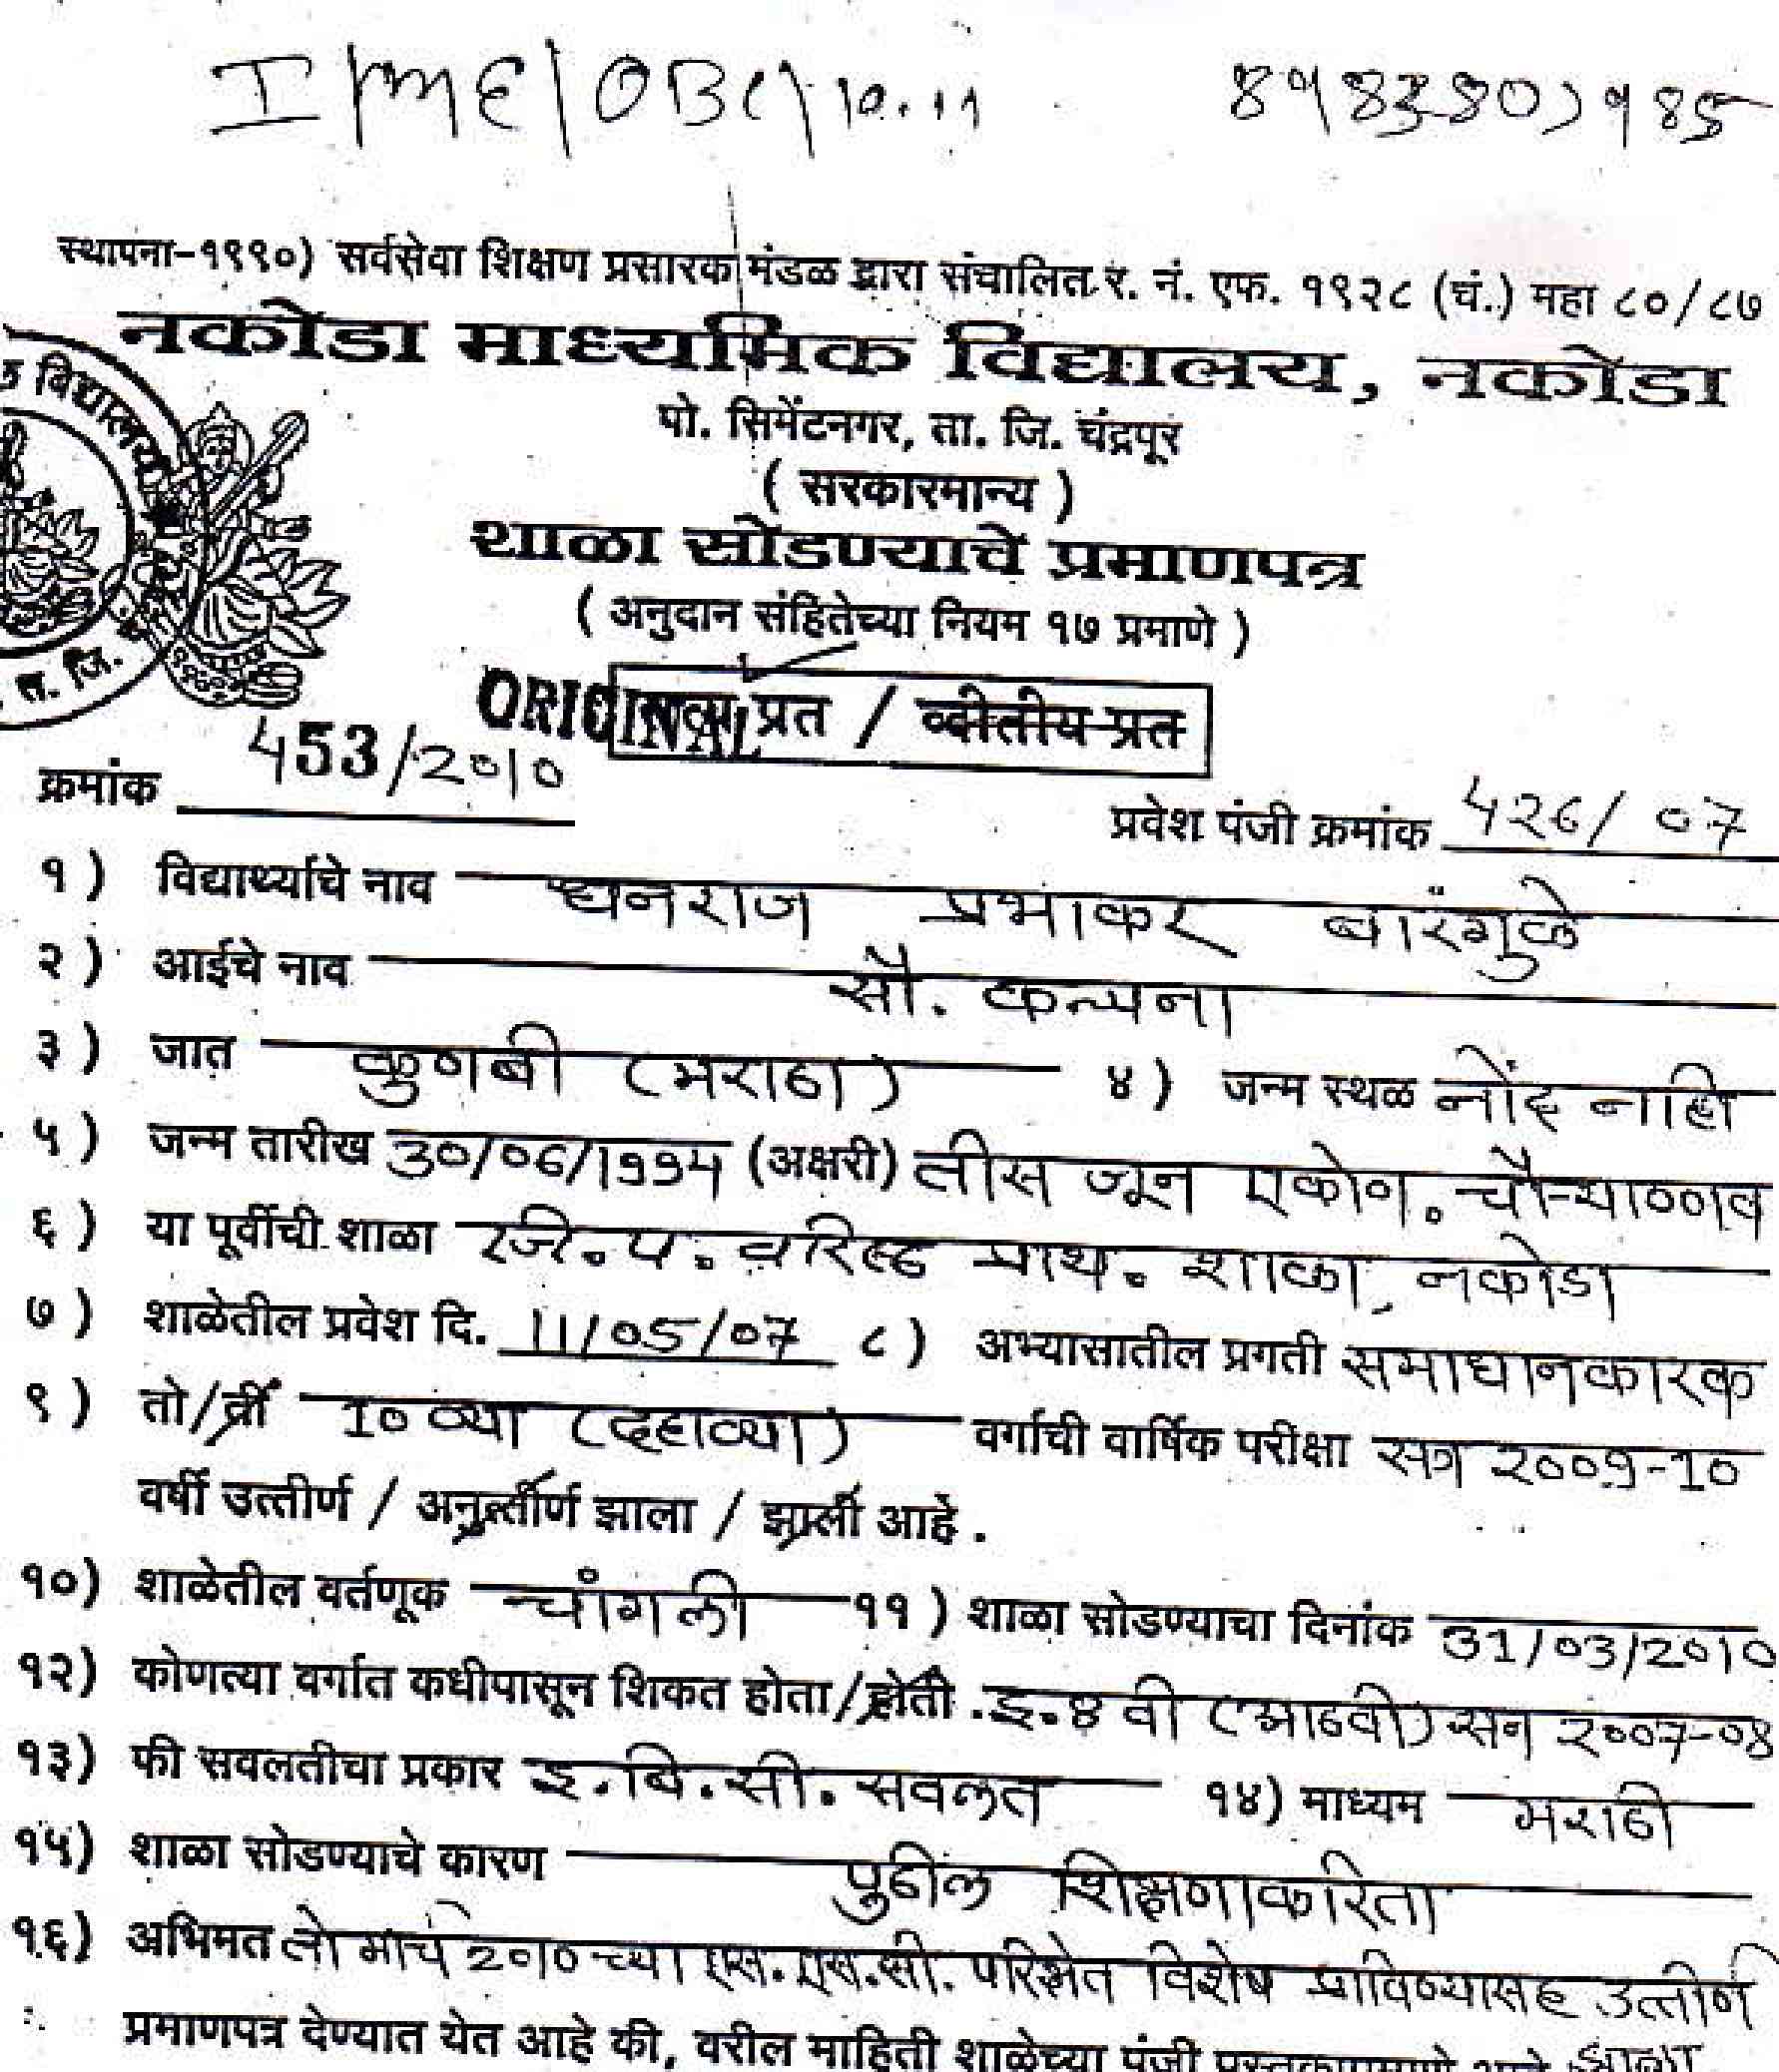 I/ME/OBC/10.11
स्थापना-१९९०) सर्वसेवा शिक्षण प्रसारक मंडळ द्वारा संचालित र. नं. एफ. १९२८ (चं.) महा ८०/८७
नकोडा माध्यमिक विद्यालय, नकोडा
पो. सिमेंटनगर, ता. जि. चंद्रपूर
( सरकारमान्य )
शाळा सोडण्याचे प्रमाणपत्र
( अनुदान संहितेच्या नियम १७ प्रमाणे )
विद्यालय
त. जि.
ORIGINAL प्रत / व्दीतीय प्रत
क्रमांक 453/2010
प्रवेश पंजी क्रमांक 426/07
१) विद्यार्थ्याचे नाव धनराज प्रभाकर बारंगुळे
२) आईचे नाव सौ. कल्पना
३) जात कुणबी (मराठा) ४) जन्म स्थळ नोंद नाही
५) जन्म तारीख 30/06/1994 (अक्षरी) तीस जून एकोण. चौऱ्याण्णव
६) या पूर्वीची शाळा जि. प. वरिष्ठ प्राथ. शाळा, नकोडा
७) शाळेतील प्रवेश दि. 11/05/07 ८) अभ्यासातील प्रगती समाधानकारक
९) तो/ती 10 व्या (दहाव्या) वर्गाची वार्षिक परीक्षा सत्र 2009-10
वर्षी उत्तीर्ण / अनुत्तीर्ण झाला / झाली आहे .
१०) शाळेतील वर्तणूक चांगली ११) शाळा सोडण्याचा दिनांक 31/03/2010
१२) कोणत्या वर्गात कधीपासून शिकत होता/होती . इ. ८ वी (आठवी) सन 2007-08
१३) फी सवलतीचा प्रकार इ. बि. सी. सवलत १४) माध्यम मराठी
१५) शाळा सोडण्याचे कारण पुढील शिक्षणाकरिता
१६) अभिमत तो मार्च 2010 च्या एस. एस. सी. परिक्षेत विशेष प्राविण्यासह उत्तीर्ण
झाला
प्रमाणपत्र देण्यात येत आहे की, वरील माहिती शाळेच्या पंजी पुस्तकाप्रमाणे आहे